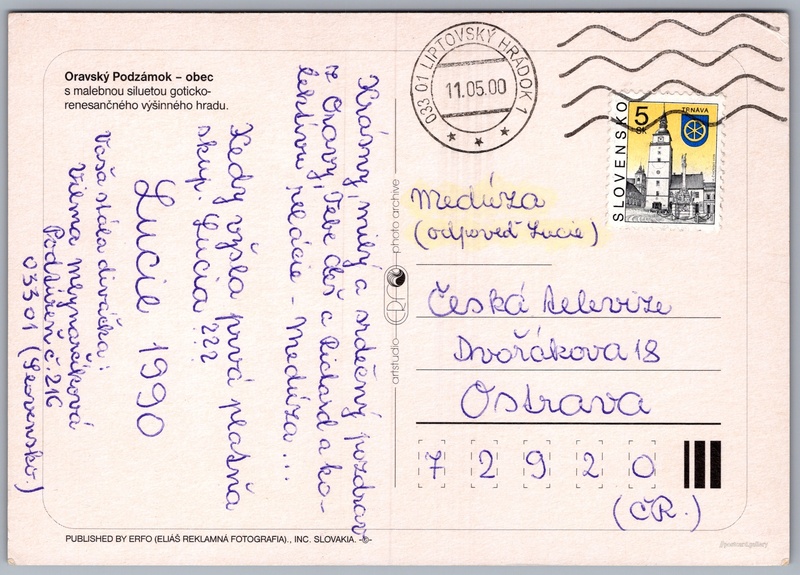 Oravský Podzámok – obec
s malebnou siluetou goticko-
renesančného výšinného hradu.
Krásny, milý a srdečný pozdrav
z Oravy, Tebe deš a Richard a ko-
lektívu relácie - Medúza ...
Kedy vyšla prvá platňa
skup. Lucia ???
Lucie 1990
Vaša stála diváčka:
Vilma Mlynarčíková
Podtúreň č. 216
03301 (Slovensko.)
PUBLISHED BY ERFO (ELIÁŠ REKLAMNÁ FOTOGRAFIA)., INC. SLOVAKIA. -©-
artstudio ERFO photo archive
033 01 LIPTOVSKÝ HRÁDOK 1
11.05.00
SLOVENSKO
5
SK
TRNAVA
Medúza
(odpoveď Lucie)
Česká televize
Dvořákova 18
Ostrava
7 2 9 2 0
(ČR.)